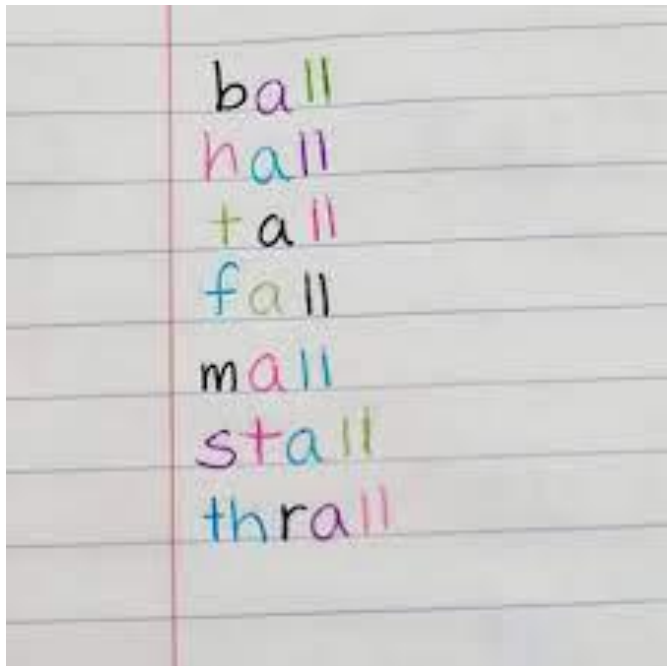 ball
hall
tall
fall
mall
stall
thrall